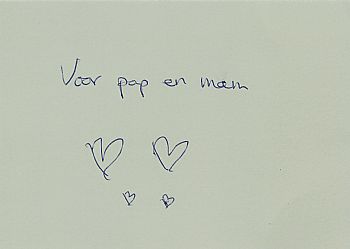 Voor pap en mam